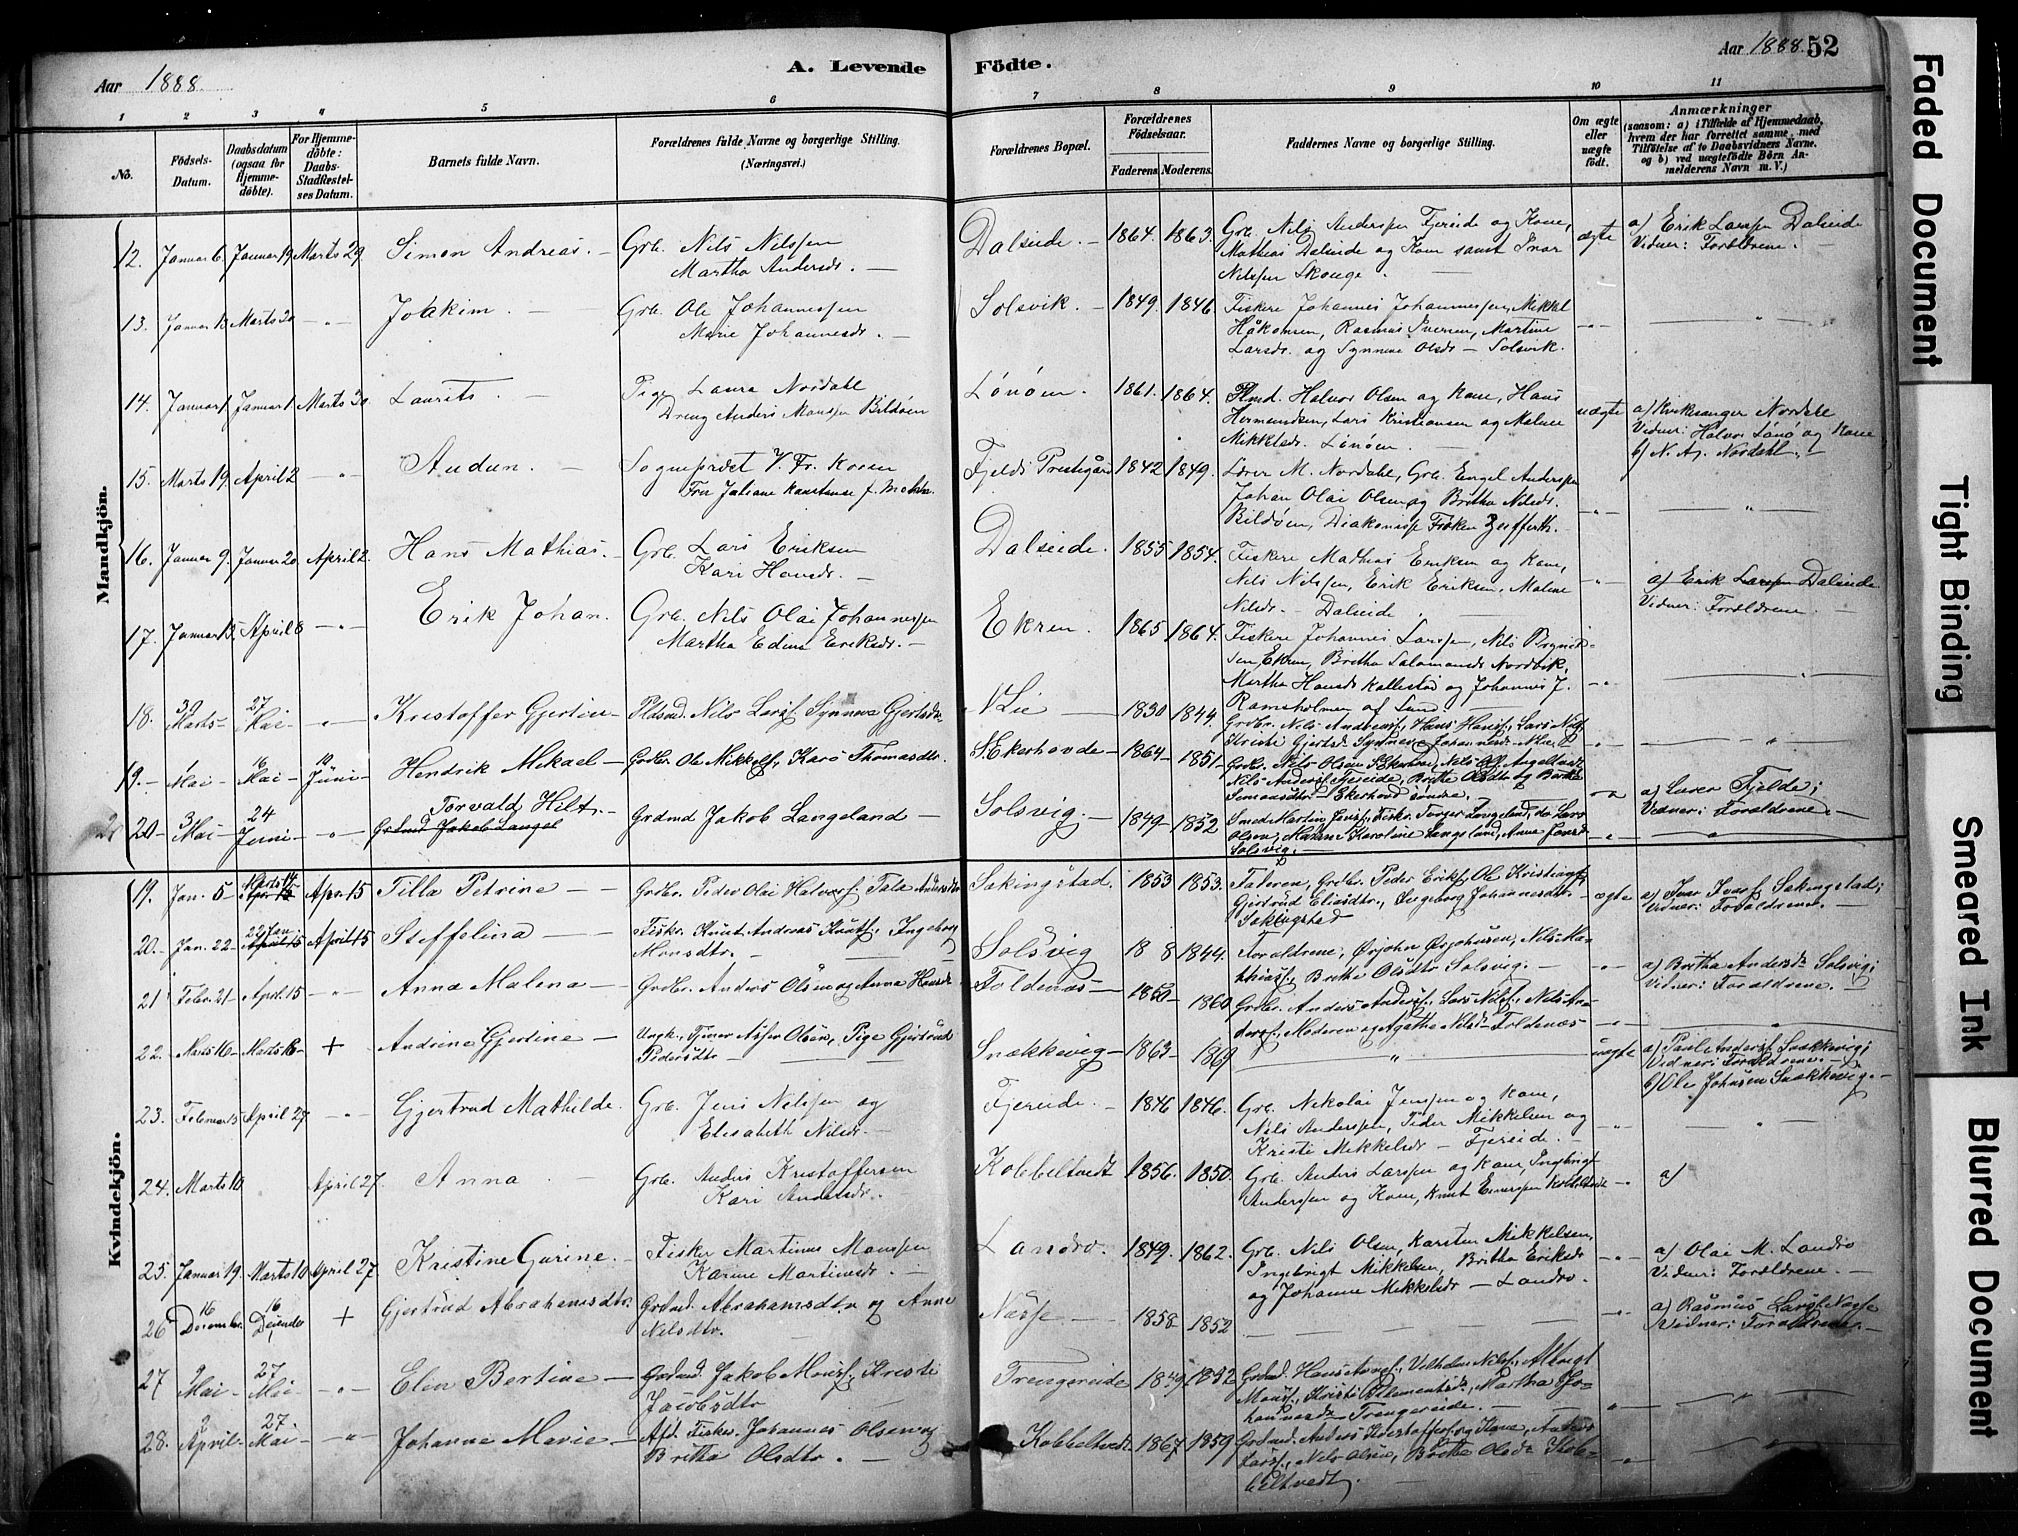 Aar 1888.
A. Levende
Födte.
Aar 1888. 52
1 2 3 4 5 6 7 8 9 10 11
No.
Födsels-Datum.
Daabsdatum (ogsaa for Hjemmedöbte).
For Hjemmedöbte: Daabs-Stadfæstelses Datum.
Barnets fulde Navn.
Forældrenes fulde Navne og borgerlige Stilling. (Næringsvei.)
Forældrenes Bopæl.
Forældrenes Födselsaar.
Faderens. Moderens.
Faddernes Navne og borgerlige Stilling.
Om ægte eller uægte födt.
Anmærkninger
(saasom: a) i Tilfælde af Hjemmedaab, hvem der har forrettet samme, med Tilföielse af to Daabsvidners Navne. og b) ved uægtefödte Börn Anmelderens Navn m. V.)
Mandkjön.
12. Januar 6. Januar 19 Marts 29 Simon Andreas. — Grb. Nils Nilssen
Martha Andersdr. — Dalseide. — 1864. 1863. Grb. Nils Anderssen Fjereide og Kone,
Mathias Dalseide og Kone samt Ivar
Nilssen Skouge. — ægte a) Erik Larssen Dalseide
Vidner: Forældrene. —
13. Januar 13 Marts 20 — " — Joakim. — Grb. Ole Johannessen
Marie Johannesdr. — Solsvik. — 1849. 1846. Fiskere Johannes Johannessen, Mikkel
Håkonsen, Rasmus Iversen, Martine
Larsdr. og Synneve Olsdr — Solsvik. — " — "
14. Januar 1 Januar 1 Marts 30 Laurits. — Pige Laura Nordale
Dreng Anders Monsen Bildöen Lönöen. — 1861. 1864. Plmd. Halvor Olsen og Kone, Hans
Hermundsen, Lars Kristiansen og Malene
Mikkelsdr. Lönöen. — uægte a) Kirkesanger Nordale
Vidner: Halvor Lönö og Kone
b) N. A. Nordahl. —
15. Marts 19. April 2 — " — Audun. — Sogneprest V. Fr. Koren
Fru Juliane Konstanse f. Fjelds Prestegård 1842 1849. Lærer M. Nordale, Grb. Engel Anderssen
Johan Olai Olsen og Britha Nilsdr.
Bildöen, Diakonisse Fröken — " — "
16. Januar 9. Januar 20. April 2. Hans Mathias. — Grb. Lars Eriksen
Kari Hansdr. — Dalseide. 1855 1854. Fiskere Mathias Eriksen og Kone,
Nils Nilssen, Erik Eriksen, Malene
Nilsdr. — Dalseide. — " — a) Erik Larssen Dalseide
Vidner: Forældrene. —
17. Januar 15. April 8 — " — Erik Johan. Grb. Nils Olai Johannessen
Martha Edine Eriksdr. — Ekren. 1865 1864. Fiskere Johannes Larssen, Nils Brynild-
sen Ekren, Britha Salomonsdr Nordvik,
Martha Hansdr Kallestad og Johannes J.
Ramsholmen af Sund. — — " — "
18. 30 Marts — 27 Mai — " — Kristoffer Gjertin — Pldsmd. Nils Larsf. Synneva Gjertsdtr N Lie — 1830 1844. Grdbr. Nils Andersf., Hans Hansf., Lars Nilsf.,
Kristi Gjertsdr Synneva Johannesdr N Lie — " — "
19. — 1 Mai — 16 Mai — 10 Juni — Hendrik Mikael — Grdbr. Ole Mikkelsf., Karo Thomasdtr. S. Ekerhovde — 1864 — 1851 — Grdbr. Nils Olsen S. Ekerhovd, Nils Olsf. Angeltvedt,
Nils Andersf. Fjereide, Britha Olsdtr og Britha
Simonsdtr — Ekerhovd söndre. — — " — a) Lærer Fjelde;
Vidner: Forældrene —
20 — 3 Mai — 24 Juni — " — Torvald Hilt. —
Grdmd Jakob Langel Grdmd Jakob Langeland — Solsvig. — 1849 — 1852 Smed Martin, Fisk. Torger Langeland, do Lars
Olsen, Karoline Langeland, Anne
Solsvig. — — " — "
Kvindekjön.
19. Jan. 5 — Marts 14 April 15 Apr. 15 Tilla Petrine — Grdbr. Peder Olai Halvorsf. Tala Andersdtr Sekingstad. 1853 1853. Faderen, Grdbr. Peder Eriksf., Ole Kristiansf.,
Gjertrud Eliasdtr., Ingeborg Johannesdtr
Sekingstad ægte a) Ivar Ivarsf. Sekingstad;
Vidner: Forældrene. —
20. — Jan. 22 — 22 Jan. April 15 April 15 Steffelina — Fisker Knut Andreas Knutsf., Ingeborg
Monsdtr. — Solsvig 18 8 1844. Forældrene, Örjohn Örjohnsen, Nils Ma-
thiasf., Britha Olsdtr Solsvig. — — " — a) Britha Andersdr Solsvig;
Vidner: Forældrene. —
21 Febr. 21 — April 15 — " — Anna Malena — Grdbr. Anders Olsen og Anna Hansdr Foldenæs — 1860 — 1860 Grdbr. Anders Andersf., Lars Nilsf., Nils An-
dersf., Moderen og Agathe Nilsdr Foldenæs — " — "
22. Marts 16 — Marts 16 — + Andrine Gjertine — Ungk., Tjener Asser Olsen, Pige Gjertrud
Pedersdtr — Snækkevig — 1863 — 1869 — " — uægte a) Paul Andersf. Snækkevig;
Vidner: Forældrene. —
b) Ole Johnsen Snækkevig. —
23. Februar 5 April 27 — " — Gjertrud Mathilde. Grb. Jens Nilssen og
Elisabeth Nilsdr. — Fjereide. — 1846 1846. Grb. Nikolai Jenssen og Kone,
Nils Anderssen, Peder Mikkelsen og
Kristi Mikkelsdr — Fjereide. — — " — "
24. Marts 10 April 27 Anna — Grb. Anders Kristoffersen
Kari Andersdr. — Kobbeltvedt 1856. 1850. Grb. Anders Larssen og Kone, Ingbrigt
Anderssen og Kone, Knut Einerssen Kobbeltvedt — " — a)
25. Januar 19. Marts 10 April 27. Kristine Gurine. — Fisker Martinus Monssen
Karine Martinesdr. — Landro. 1849. 1862. Grb. Nils Olsen, Karsten Mikkelsen,
Ingebrigt Mikkelsen, Britha Eriksdr
og Johanne Mikkelsdr — Landro. — " — a) Olai M. Landro
Vidner: Forældrene. —
26 16 Decembr. 16 Decemb + Gjertrud Abrahamsdtr. Grdmd. Abrahamsdtr og Anne
Nilsdtr. — Næsse — 1858 — 1852 — — — " — a) Rasmus Larsf. Næsse
Vidner: Forældrene. —
27 2 Mai — 27 Mai — " — Elen Bertine — Grdmd. Jakob Monsf., Kristi
Jacobsdtr — Trengereide 1849 1852 Grdmd. Hans Arnef., Vilhelm Nilsf., Albrigt
Monsf., Kristi Klementsdr, Martha Jo-
hannesdr Trengereide. — — " — "
28. 2 April — 27 Mai — " — Johanna Marie — Afd. Fisker Johannes Olsen og
Britha Olsdtr. — Kobbeltvedt 1867 1859 Grdmd. Anders Kristoffersf. og Kone, Anders
Larsf., Nils Olsen, Britha Olsdr Kob-
beltvedt. — — " — "
Faded Document
Tight Binding
Smeared Ink
Blurred Document